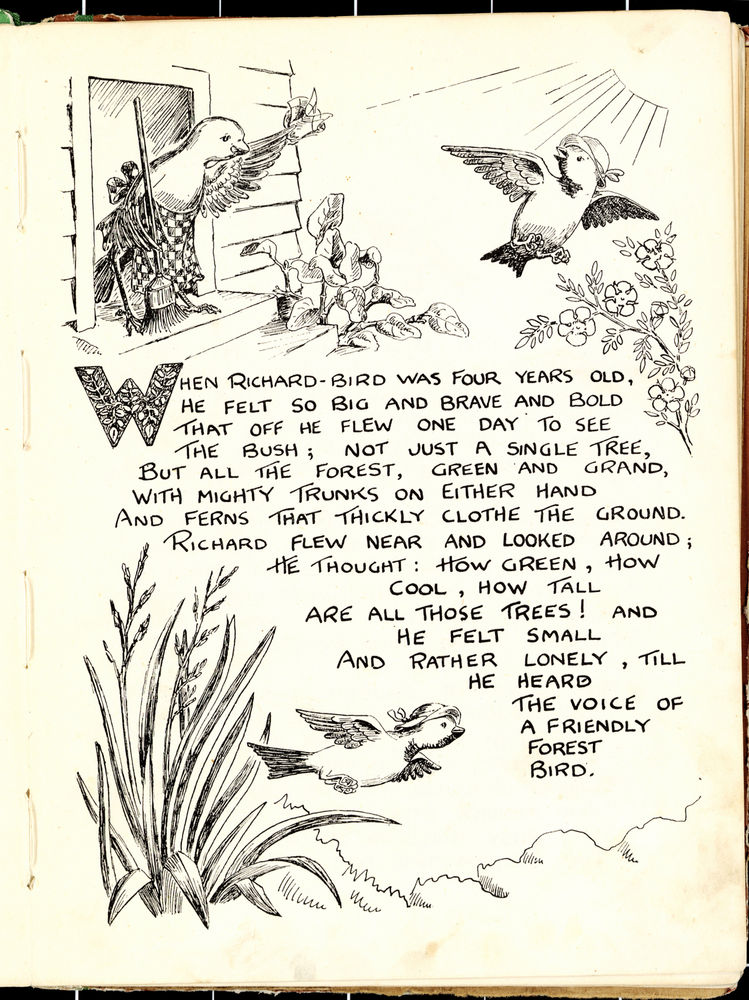 WHEN RICHARD-BIRD WAS FOUR YEARS OLD,
HE FELT SO BIG AND BRAVE AND BOLD
THAT OFF HE FLEW ONE DAY TO SEE
THE BUSH; NOT JUST A SINGLE TREE,
BUT ALL THE FOREST, GREEN AND GRAND,
WITH MIGHTY TRUNKS ON EITHER HAND
AND FERNS THAT THICKLY CLOTHE THE GROUND.
RICHARD FLEW NEAR AND LOOKED AROUND;
HE THOUGHT: HOW GREEN, HOW
COOL, HOW TALL
ARE ALL THOSE TREES! AND
HE FELT SMALL
AND RATHER LONELY, TILL
HE HEARD
THE VOICE OF
A FRIENDLY
FOREST
BIRD.